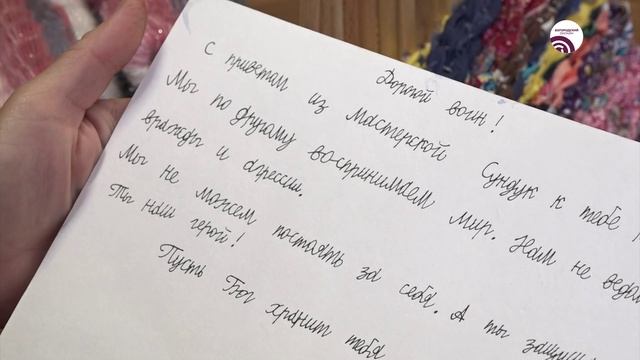 Дорогой воин!
С приветом из мастерской Сундук к тебе!
Мы по другому воспринимаем мир. Нам не ведом
вражды и агрессии.
Мы не можем постоять за себя. А ты защищ
Ты наш герой!
Пусть Бог хранит тебя
БОГОРОДСКИЙ